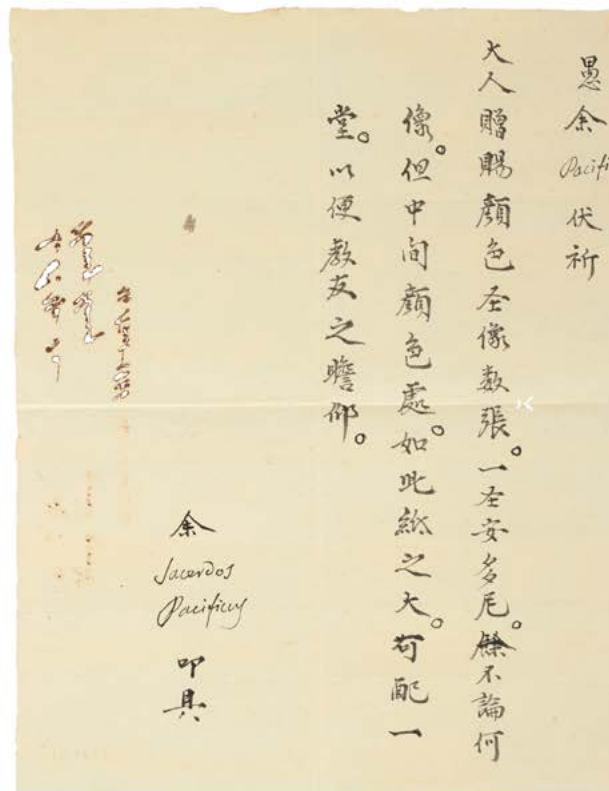 愚余Pacifi伏祈
大人贈賜顏色圣像数張。一圣安多尼。餘不論何
像。但中间顏色處。如此紙之大。可配一
堂。以便教友之瞻仰。
余
Sacerdos
Pacificus
叩具